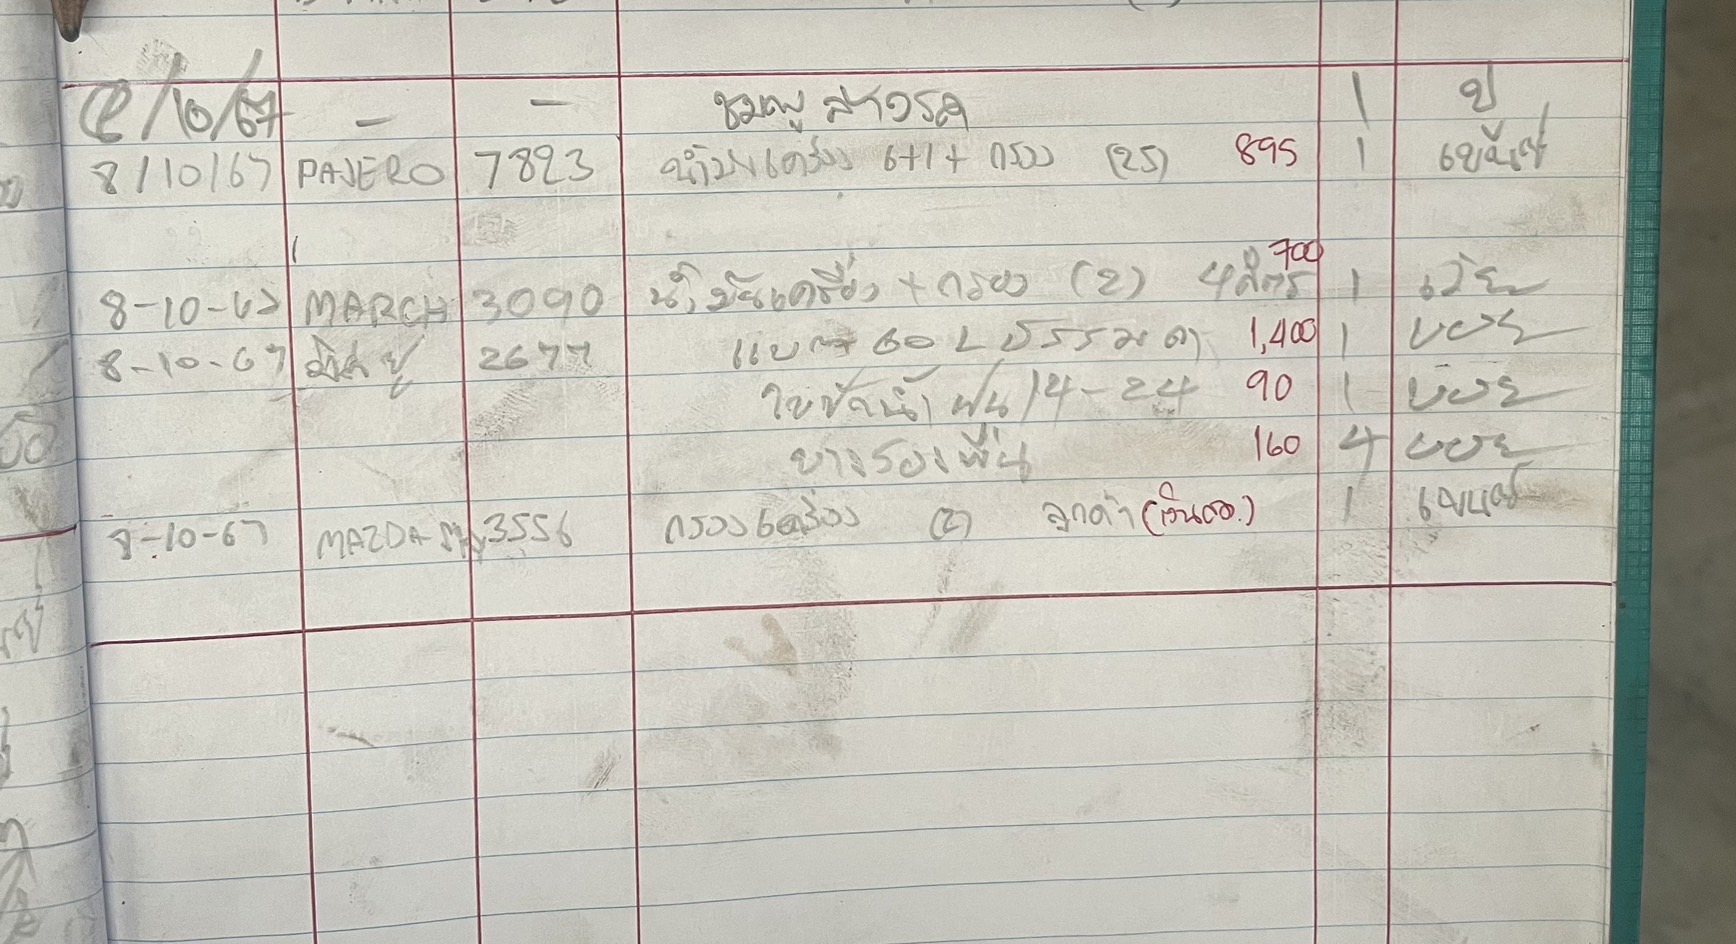 8/10/67 - - ชมพู ล้างรถ 1 ปู
8/10/67 PAJERO 7823 น้ำมันเครื่อง 6+1+ กรอง (25) 895 1
700
8-10-67 MARCH 3090 น้ำมันเครื่อง + กรอง (2) 4ลิตร 1
8-10-67 มิตซู 2677 แบต 60 L ธรรมดา 1,400 1 บอย
ใบปัดน้ำฝน 14-24 90 1 บอย
ยางรองพื้น 160 4 บอย
8-10-67 MAZDA 3556 กรองเครื่อง (2) ลูกค้า 1